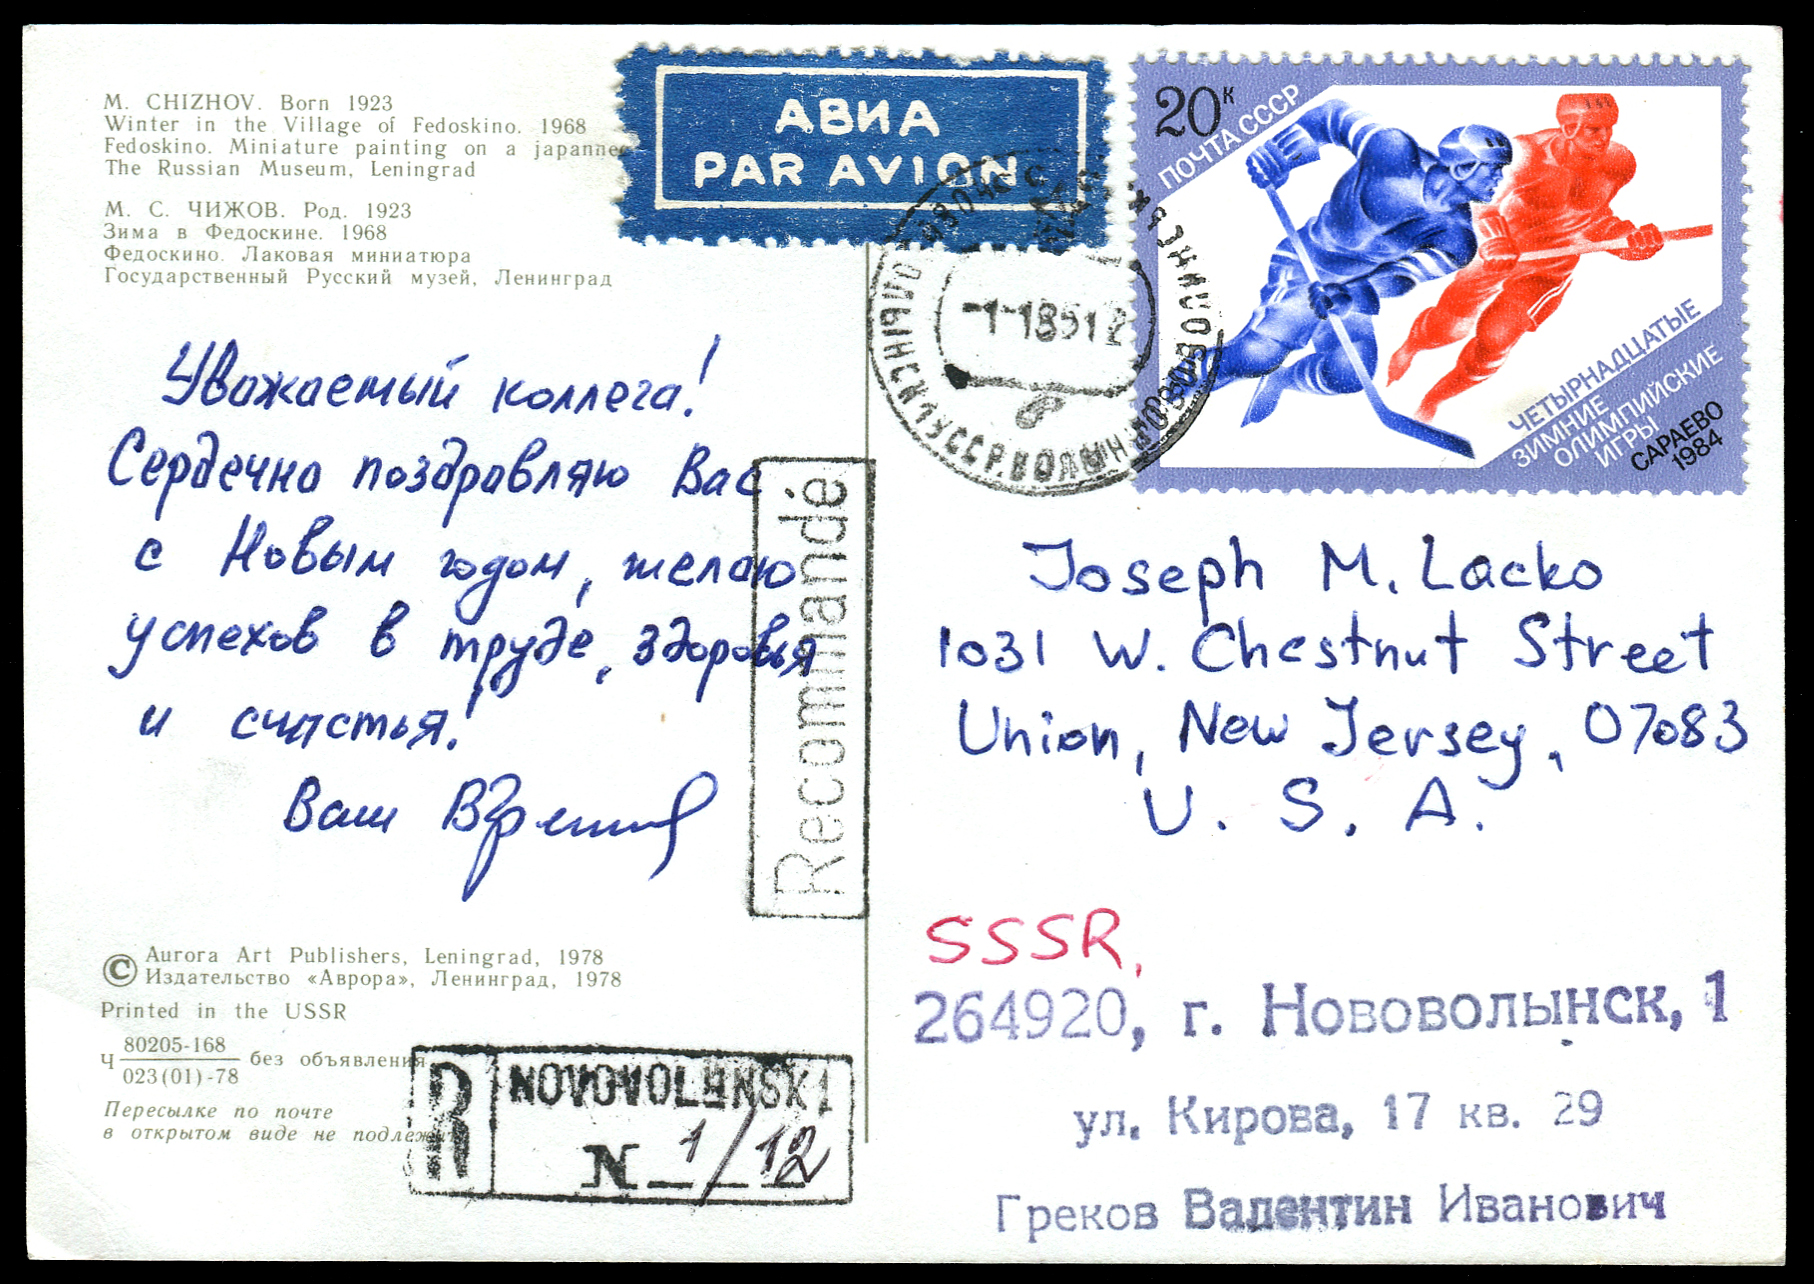 M. CHIZHOV. Born 1923
Winter in the Village of Fedoskino. 1968
Fedoskino. Miniature painting on a japanne
The Russian Museum, Leningrad
М. С. ЧИЖОВ. Род. 1923
Зима в Федоскине. 1968
Федоскино. Лаковая миниатюра
Государственный Русский музей, Ленинград
АВИА
PAR AVION
20 к
ПОЧТА СССР
ЧЕТЫРНАДЦАТЫЕ
ЗИМНИЕ
ОЛИМПИЙСКИЕ
ИГРЫ
САРАЕВО
1984
Уважаемый коллега!
Сердечно поздравляю Вас
с Новым годом, желаю
успехов в труде, здоровья
и счастья!
Ваш
Recommandé
Joseph M. Lacko
1031 W. Chestnut Street
Union, New Jersey, 07083
U. S. A.
SSSR,
264920, г. Нововолынск, 1
ул. Кирова, 17 кв. 29
Греков Валентин Иванович
© Aurora Art Publishers, Leningrad, 1978
Издательство «Аврора», Ленинград, 1978
Printed in the USSR
Ч 80205-168 без объявления
023(01)-78
Пересылке по почте
в открытом виде не подлежит
R NOVOVOLENSK 1
N 1/12